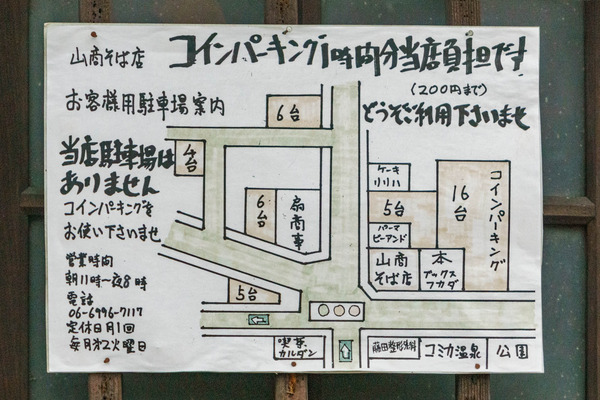 山商そば店
コインパーキング1時間分当店負担です
(200円まで)
どうぞご利用下さいませ
お客様用駐車場案内
当店駐車場は
ありません
コインパーキングを
お使い下さいませ
営業時間
朝11時〜夜8時
電話
06-6996-7117
定休日月1回
毎月第2火曜日
6台
4台
6台
扇商事
5台
ケーキ
リリハ
5台
パーマ
ビーアンド
16台
コインパーキング
山商
そば店
本
ブックス
フカダ
喫茶
カルダン
藤田整形外科
コミカ温泉
公園